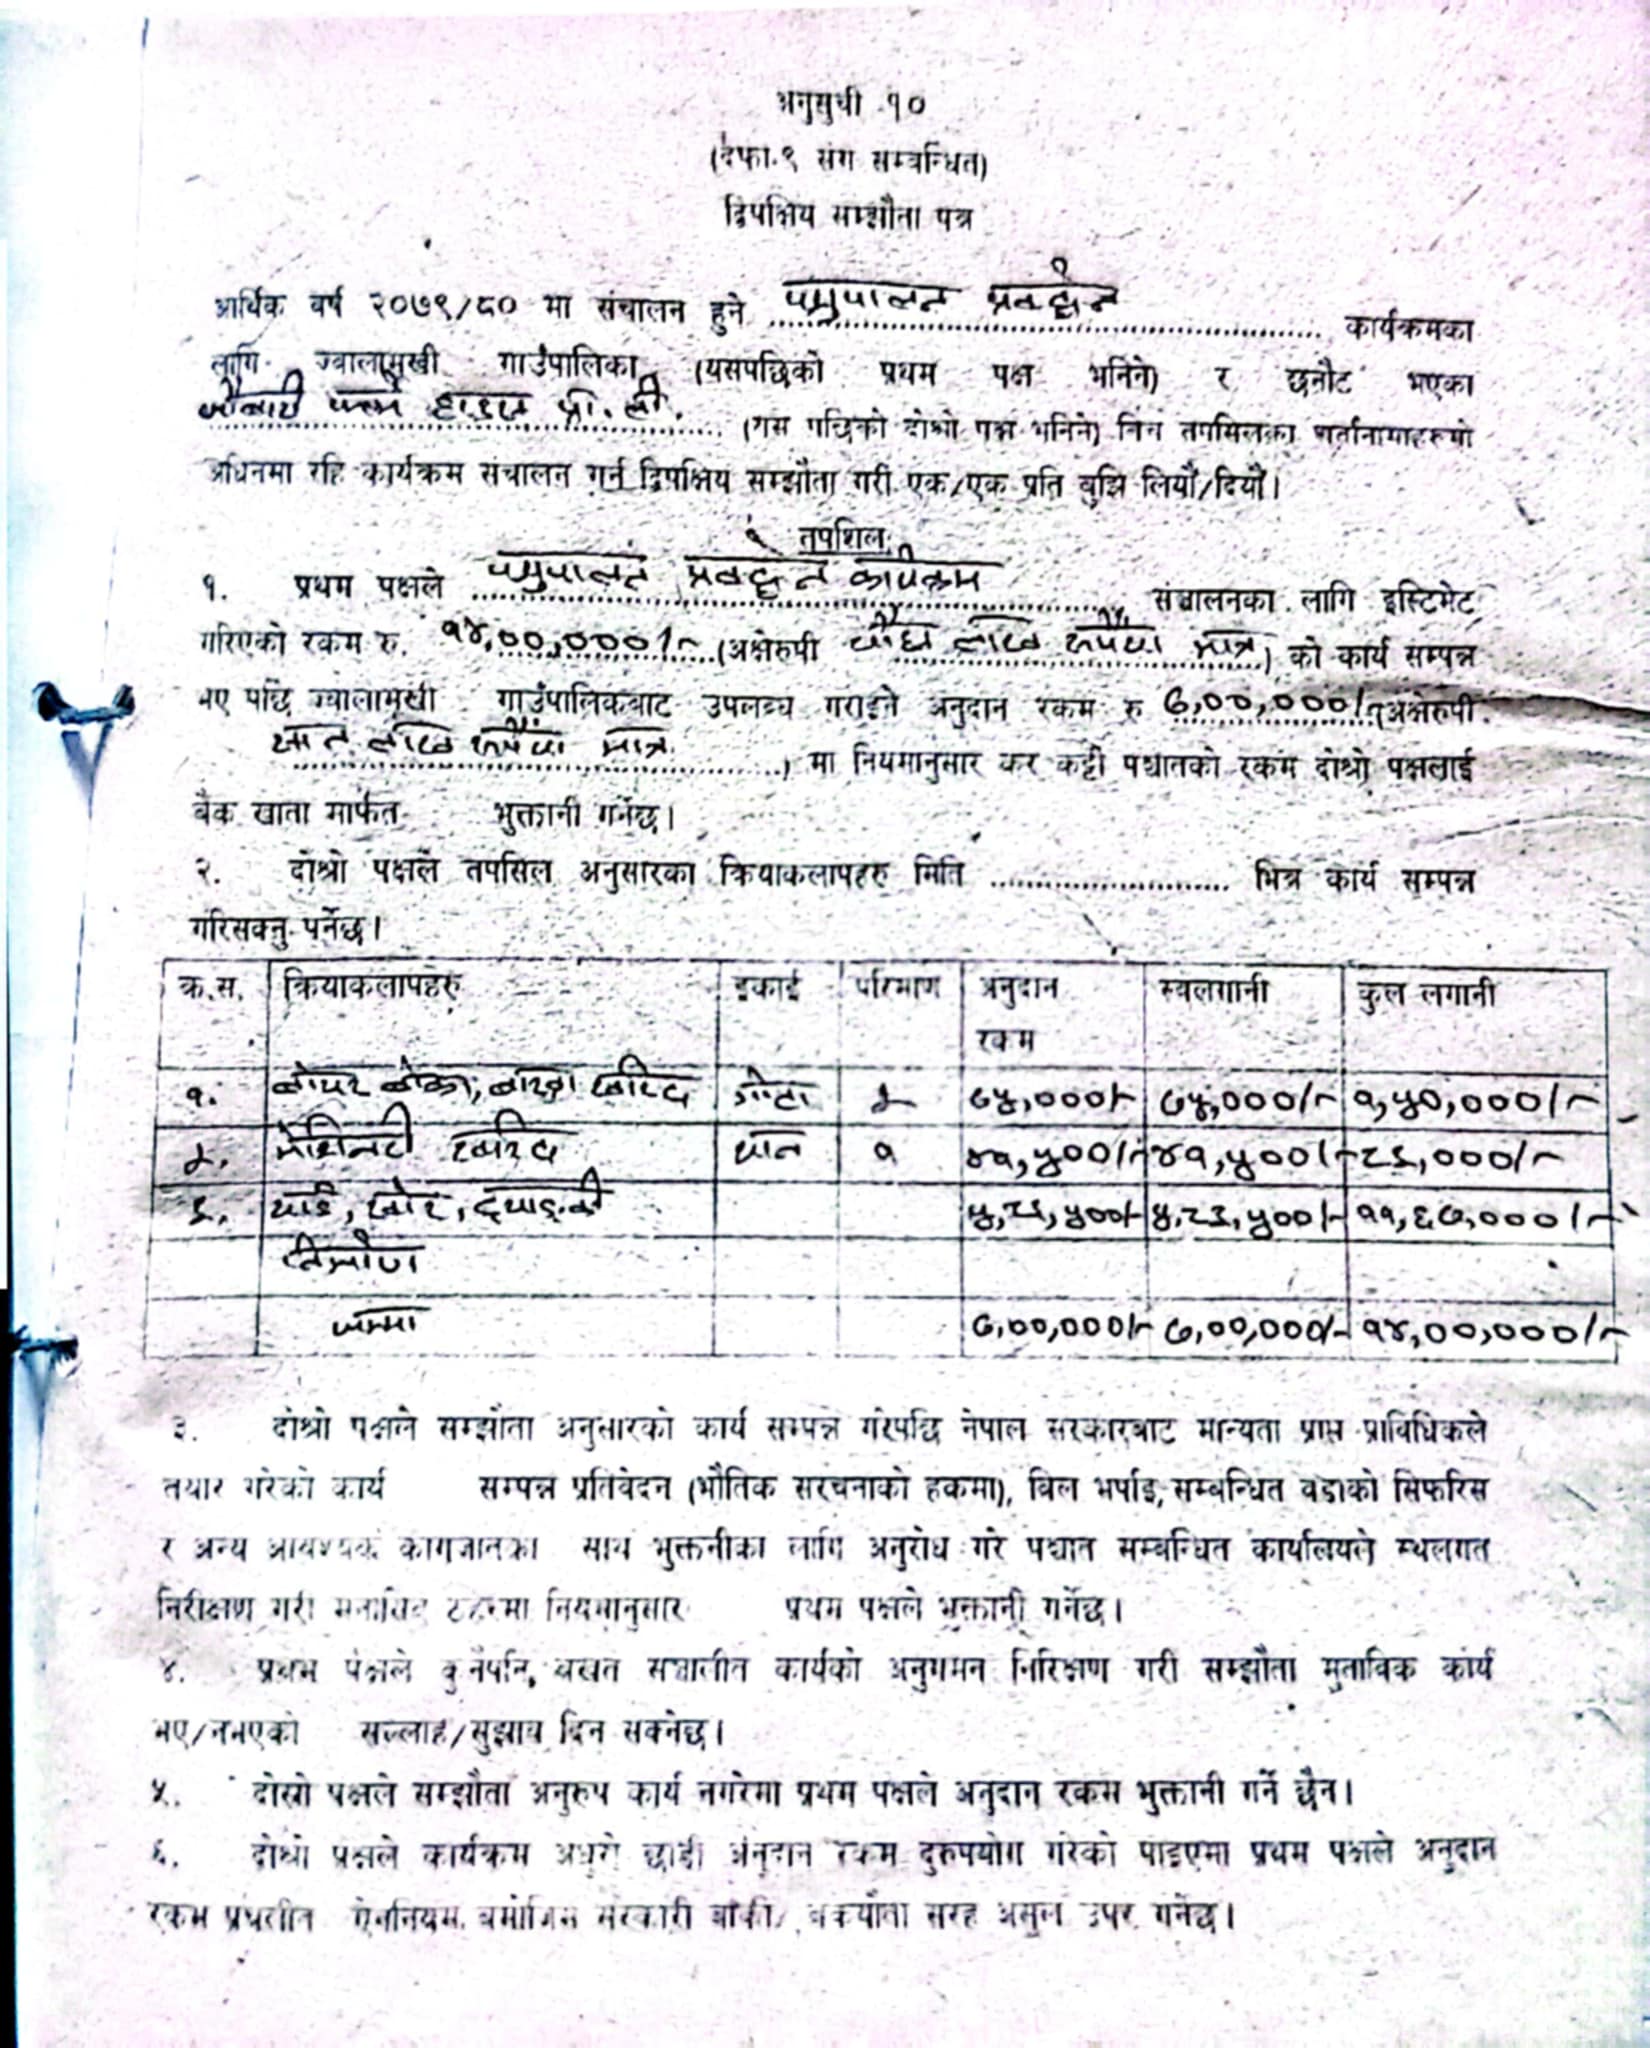 अनुसुची १०
(दफा ९ संग सम्बन्धित)
द्विपक्षिय सम्झौता पत्र
आर्थिक वर्ष २०७९/८० मा संचालन हुने पशुपालन प्रवर्द्धन कार्यक्रमका
लागि ज्वालामुखी गाउँपालिका (यसपछिको प्रथम पक्ष भनिने) र छनौट भएका
फर्म हाउस प्रा. ली. (यस पछिको दोश्रो पक्ष भनिने) विच तपसिलका शर्तनामाहरुको
अधिनमा रहि कार्यक्रम संचालन गर्न द्विपक्षिय सम्झौता गरी एक/एक प्रति बुझि लियौं/दियौं।
तपशिल
१. प्रथम पक्षले पशुपालन प्रवर्द्धन कार्यक्रम संचालनका लागि इस्टिमेट
गरिएको रकम रु. १४,००,०००/- (अक्षेरुपी चौध लाख रुपैंया मात्र) को कार्य सम्पन्न
भए पछि ज्वालामुखी गाउँपालिकबाट उपलब्ध गराइने अनुदान रकम रु ७,००,०००/- (अक्षेरुपी
सात लाख रुपैंया मात्र) मा नियमानुसार कर कट्टी पश्चातको रकम दोश्रो पक्षलाई
बैंक खाता मार्फत भुक्तानी गर्नेछ।
२. दोश्रो पक्षले तपसिल अनुसारका क्रियाकलापहरु मिति ........................ भित्र कार्य सम्पन्न
गरिसक्नु पर्नेछ।
क्र.स. क्रियाकलापहरु इकाई परिमाण अनुदान रकम स्वलगानी कुल लगानी
१. बोयर बोका, बाख्रा खरिद गोटा २ ७५,०००/- ७५,०००/- १,५०,०००/-
२. मेशिनरी खरिद थान १ ४१,५००/- ४१,५००/- ८३,०००/-
३. यार्ड, खोर, ट्याङ्की ५,८३,५००/- ५,८३,५००/- ११,६७,०००/-
निर्माण
जम्मा ७,००,०००/- ७,००,०००/- १४,००,०००/-
३. दोश्रो पक्षले सम्झौता अनुसारको कार्य सम्पन्न गरेपछि नेपाल सरकारबाट मान्यता प्राप्त प्राविधिकले
तयार गरेको कार्य सम्पन्न प्रतिवेदन (भौतिक संरचनाको हकमा), बिल भर्पाइ, सम्बन्धित वडाको सिफरिस
र अन्य आवश्यक कागजातका साथ भुक्तनीका लागि अनुरोध गरे पश्चात सम्बन्धित कार्यालयले स्थलगत
निरीक्षण गरी मनासिव ठहरेमा नियमानुसार प्रथम पक्षले भुक्तानी गर्नेछ।
४. प्रथम पक्षले कुनैपनि बखत सञ्चालीत कार्यको अनुगमन निरिक्षण गरी सम्झौता मुताविक कार्य
भए/नभएको सल्लाह/सुझाव दिन सक्नेछ।
५. दोस्रो पक्षले सम्झौता अनुरुप कार्य नगरेमा प्रथम पक्षले अनुदान रकम भुक्तानी गर्ने छैन।
६. दोश्रो पक्षले कार्यक्रम अधुरो छाडी अनुदान रकम दुरुपयोग गरेको पाइएमा प्रथम पक्षले अनुदान
रकम प्रचलीत ऐननियम बमोजिम सरकारी बाँकी/ बक्यौता सरह असुल उपर गर्नेछ।